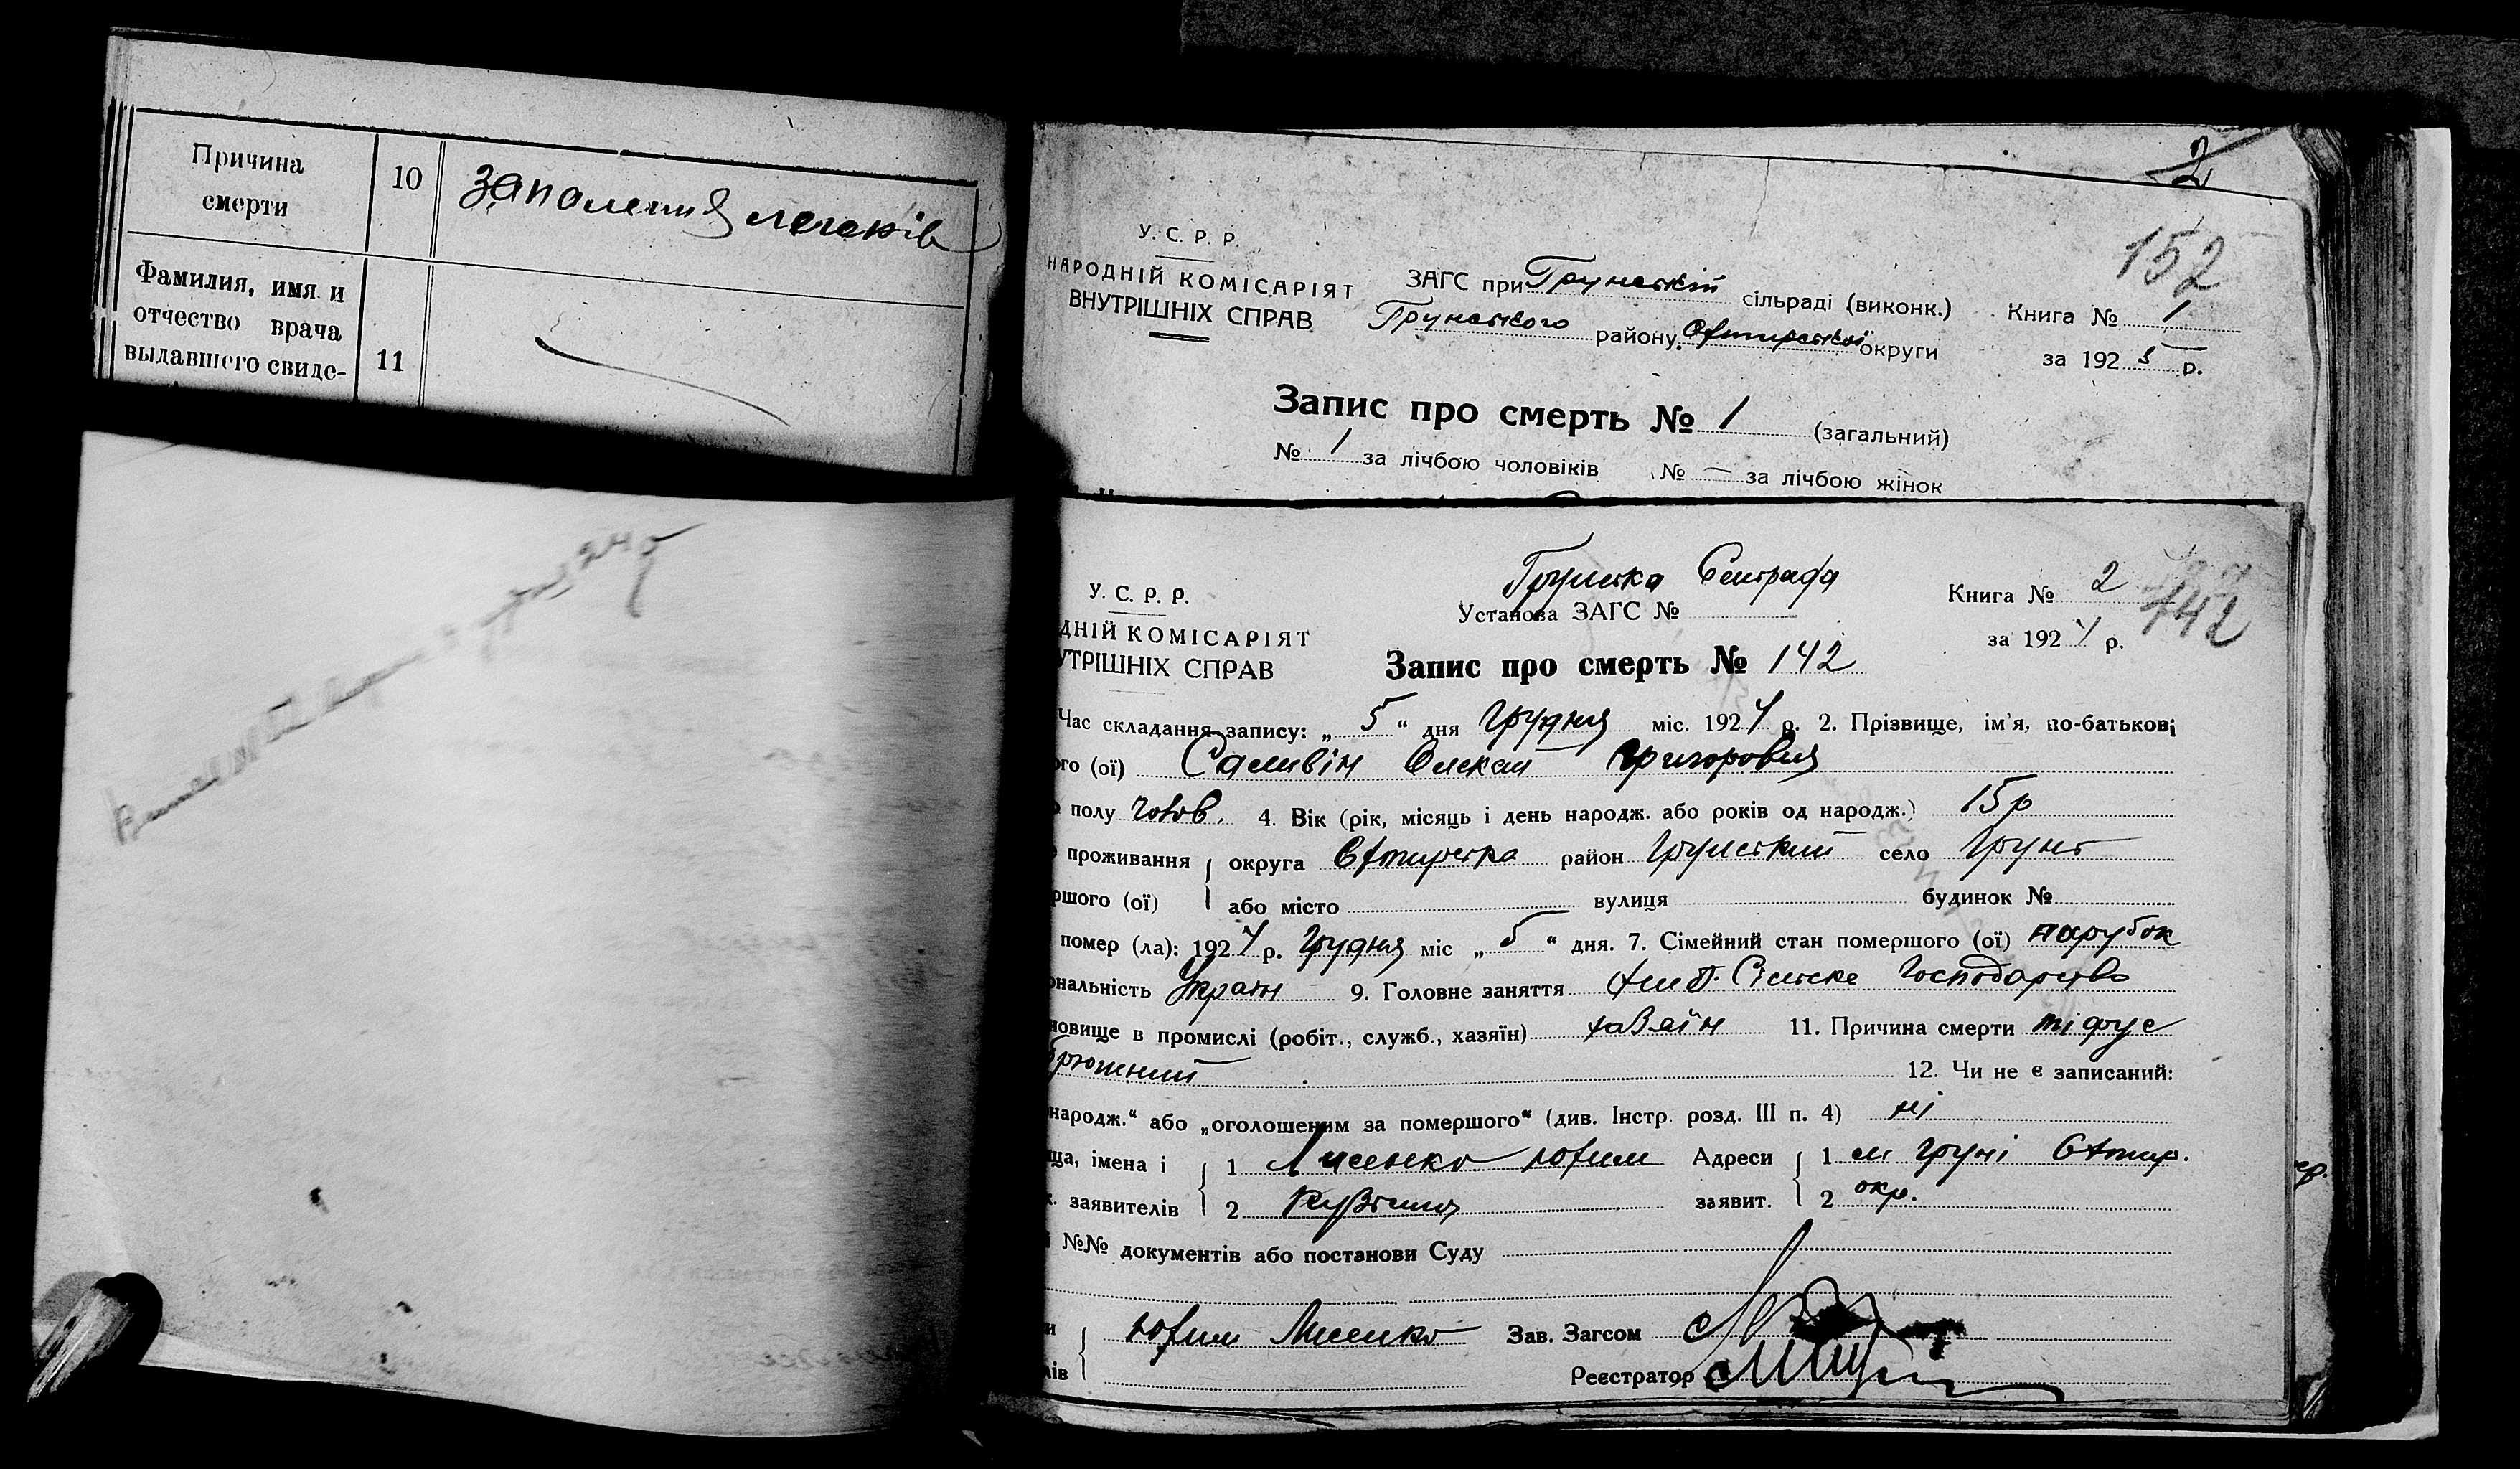 Причина
смерти
10
запаления легенів
Фамилия, имя и
отчество врача
выдавшего свиде-
11
2
152
У. С. Р. Р.
НАРОДНІЙ КОМІСАРІЯТ
ВНУТРІШНІХ СПРАВ
ЗАГС при Грунській сільраді (виконк.)
Грунського району Охтирської округи
Книга № 1
за 1925 р.
Запис про смерть № 1 (загальний)
№ 1 за лічбою чоловіків № — за лічбою жінок
У. С. Р. Р.
ДНІЙ КОМІСАРІЯТ
УТРІШНІХ СПРАВ
Грунська
Установа ЗАГС №
Книга № 2
142
за 1924 р.
Запис про смерть № 142
Час складання запису: „ 5 “ дня Грудня міс. 1924 р. 2. Прізвище, ім'я, по-батькові
ого (ої) Григоровия
полу чолов. 4. Вік (рік, місяць і день народж. або років од народж.) 15 р
проживання округа Охтирська район Грунський село Грунь
ршого (ої) або місто вулиця будинок №
помер (ла): 1924 р. Грудня міс „ 5 “ дня. 7. Сімейний стан помершого (ої) парубок
ональність Україн 9. Головне заняття Хліб. Сільске Господарство
новище в промислі (робіт., служб., хазяїн) хазяїн 11. Причина смерти тіфус
брюшний 12. Чи не є записаний:
народж.“ або „оголошеним за помершого“ (див. Інстр. розд. III п. 4) ні
ща, імена і 1 Лисенко Юхим Адреси 1 м Груні Охтир.
заявителів 2 заявит. 2 окр.
№№ документів або постанови Суду
Юхим Лисенко Зав. Загсом
Реєстратор